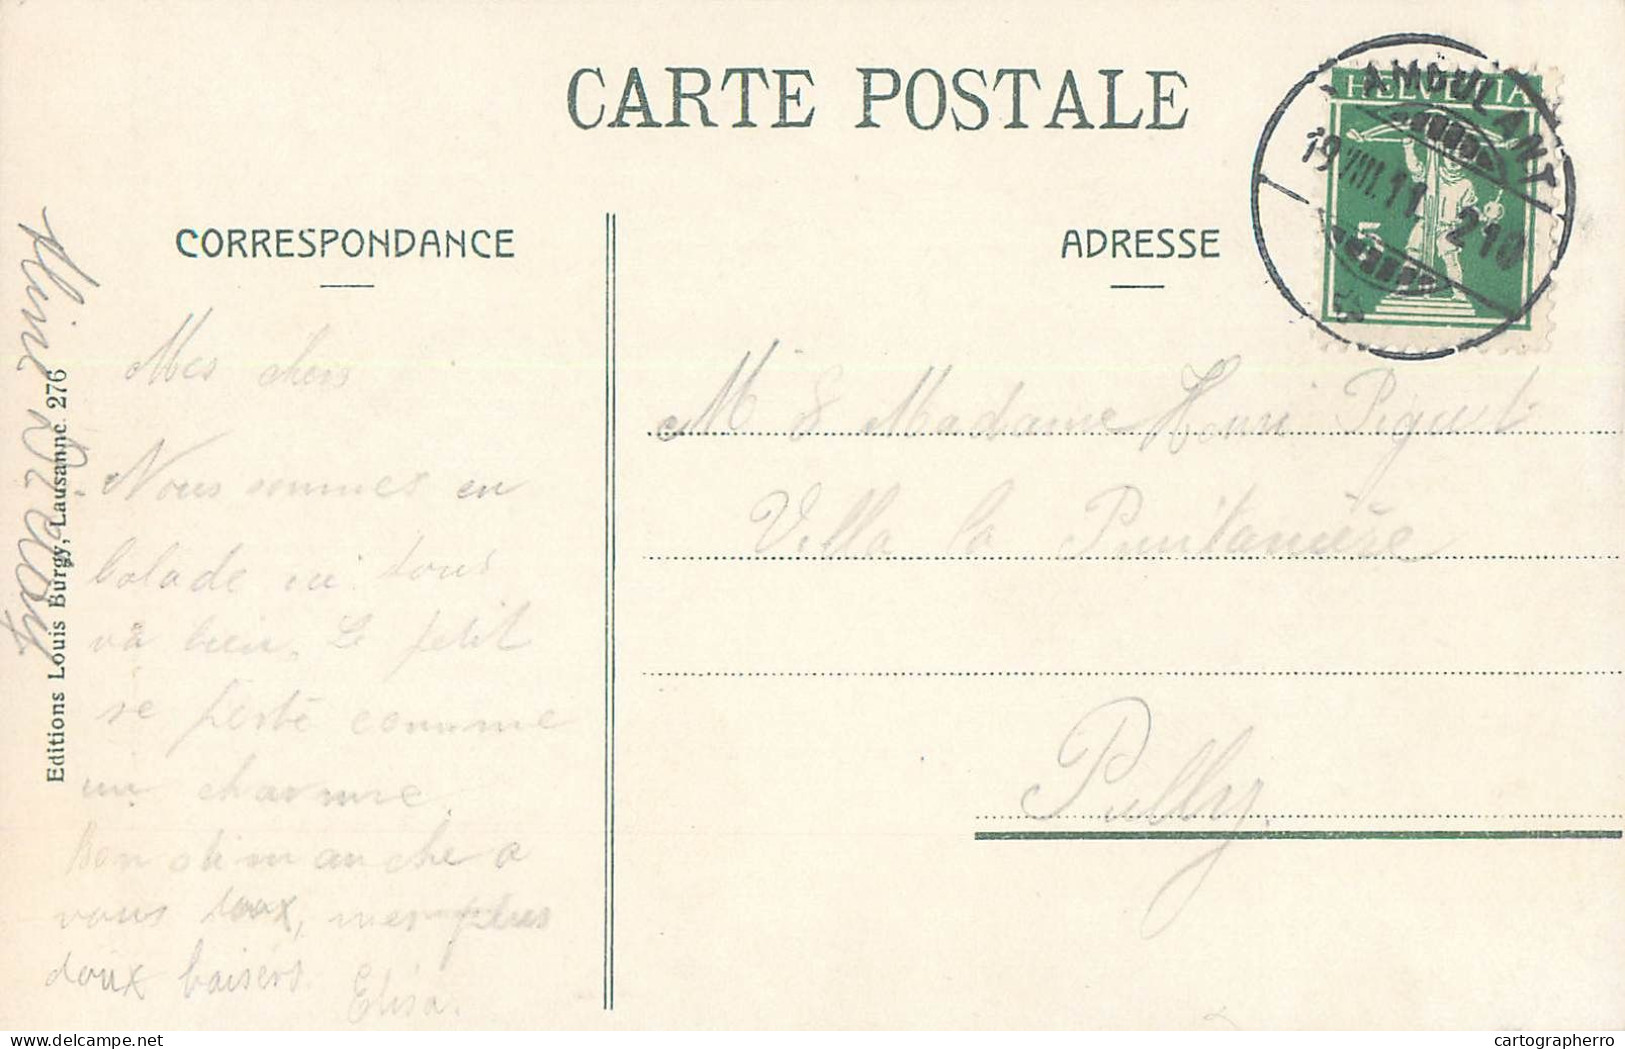 CARTE POSTALE
CORRESPONDANCE
ADRESSE
HELVETIA
5
AMBULANT
19.VIII.11. 210
Editions Louis Burgy, Lausanne. 276
Mes chers
Nous sommes en
balade ici tous
va bien. Le petit
se porte comme
un charme.
Bon dimanche a
vous tous, mes plus
doux baisers.
Elisa.
M & Madame Henri Piguet
Villa la Printanière
Pully
cartespostales-cpa.com
cartographerro